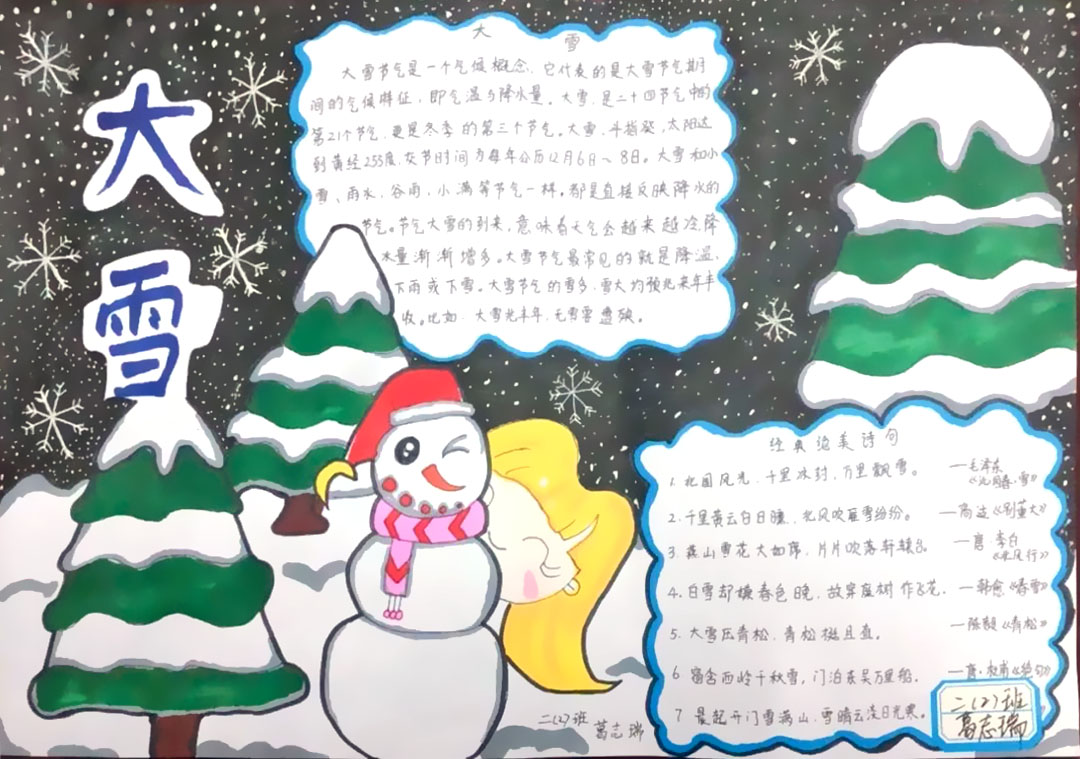 大
雪
大 雪
大雪节气是一个气候概念，它代表的是大雪节气期
间的气候特征，即气温与降水量。大雪，是二十四节气中的
第21个节气，更是冬季的第三个节气。大雪，斗指癸，太阳达
到黄经255度，交节时间为每年公历12月6日～8日。大雪和小
雪、雨水、谷雨、小满等节气一样。都是直接反映降水的
节气。节气大雪的到来，意味着天气会越来越冷，降
水量渐渐增多。大雪节气最常见的就是降温、
下雨或下雪。大雪节气的雪多，雪大均预兆来年丰
收。比如：大雪兆丰年，无雪要遭殃。
经典绝美诗句
1. 北国风光，千里冰封，万里飘雪。 —毛泽东
《沁园春·雪》
2. 千里黄云白日曛，北风吹雁雪纷纷。 —高适《别董大》
3. 燕山雪花大如席，片片吹落轩辕台。 —唐·李白
《北风行》
4. 白雪却嫌春色晚，故穿庭树作飞花。 —韩愈《春雪》
5. 大雪压青松，青松挺且直。 —陈毅《青松》
6 窗含西岭千秋雪，门泊东吴万里船。 —唐·杜甫《绝句》
7 晨起开门雪满山，雪晴云淡日光寒。
二(2)班
葛志瑞
二(2)班
葛志瑞